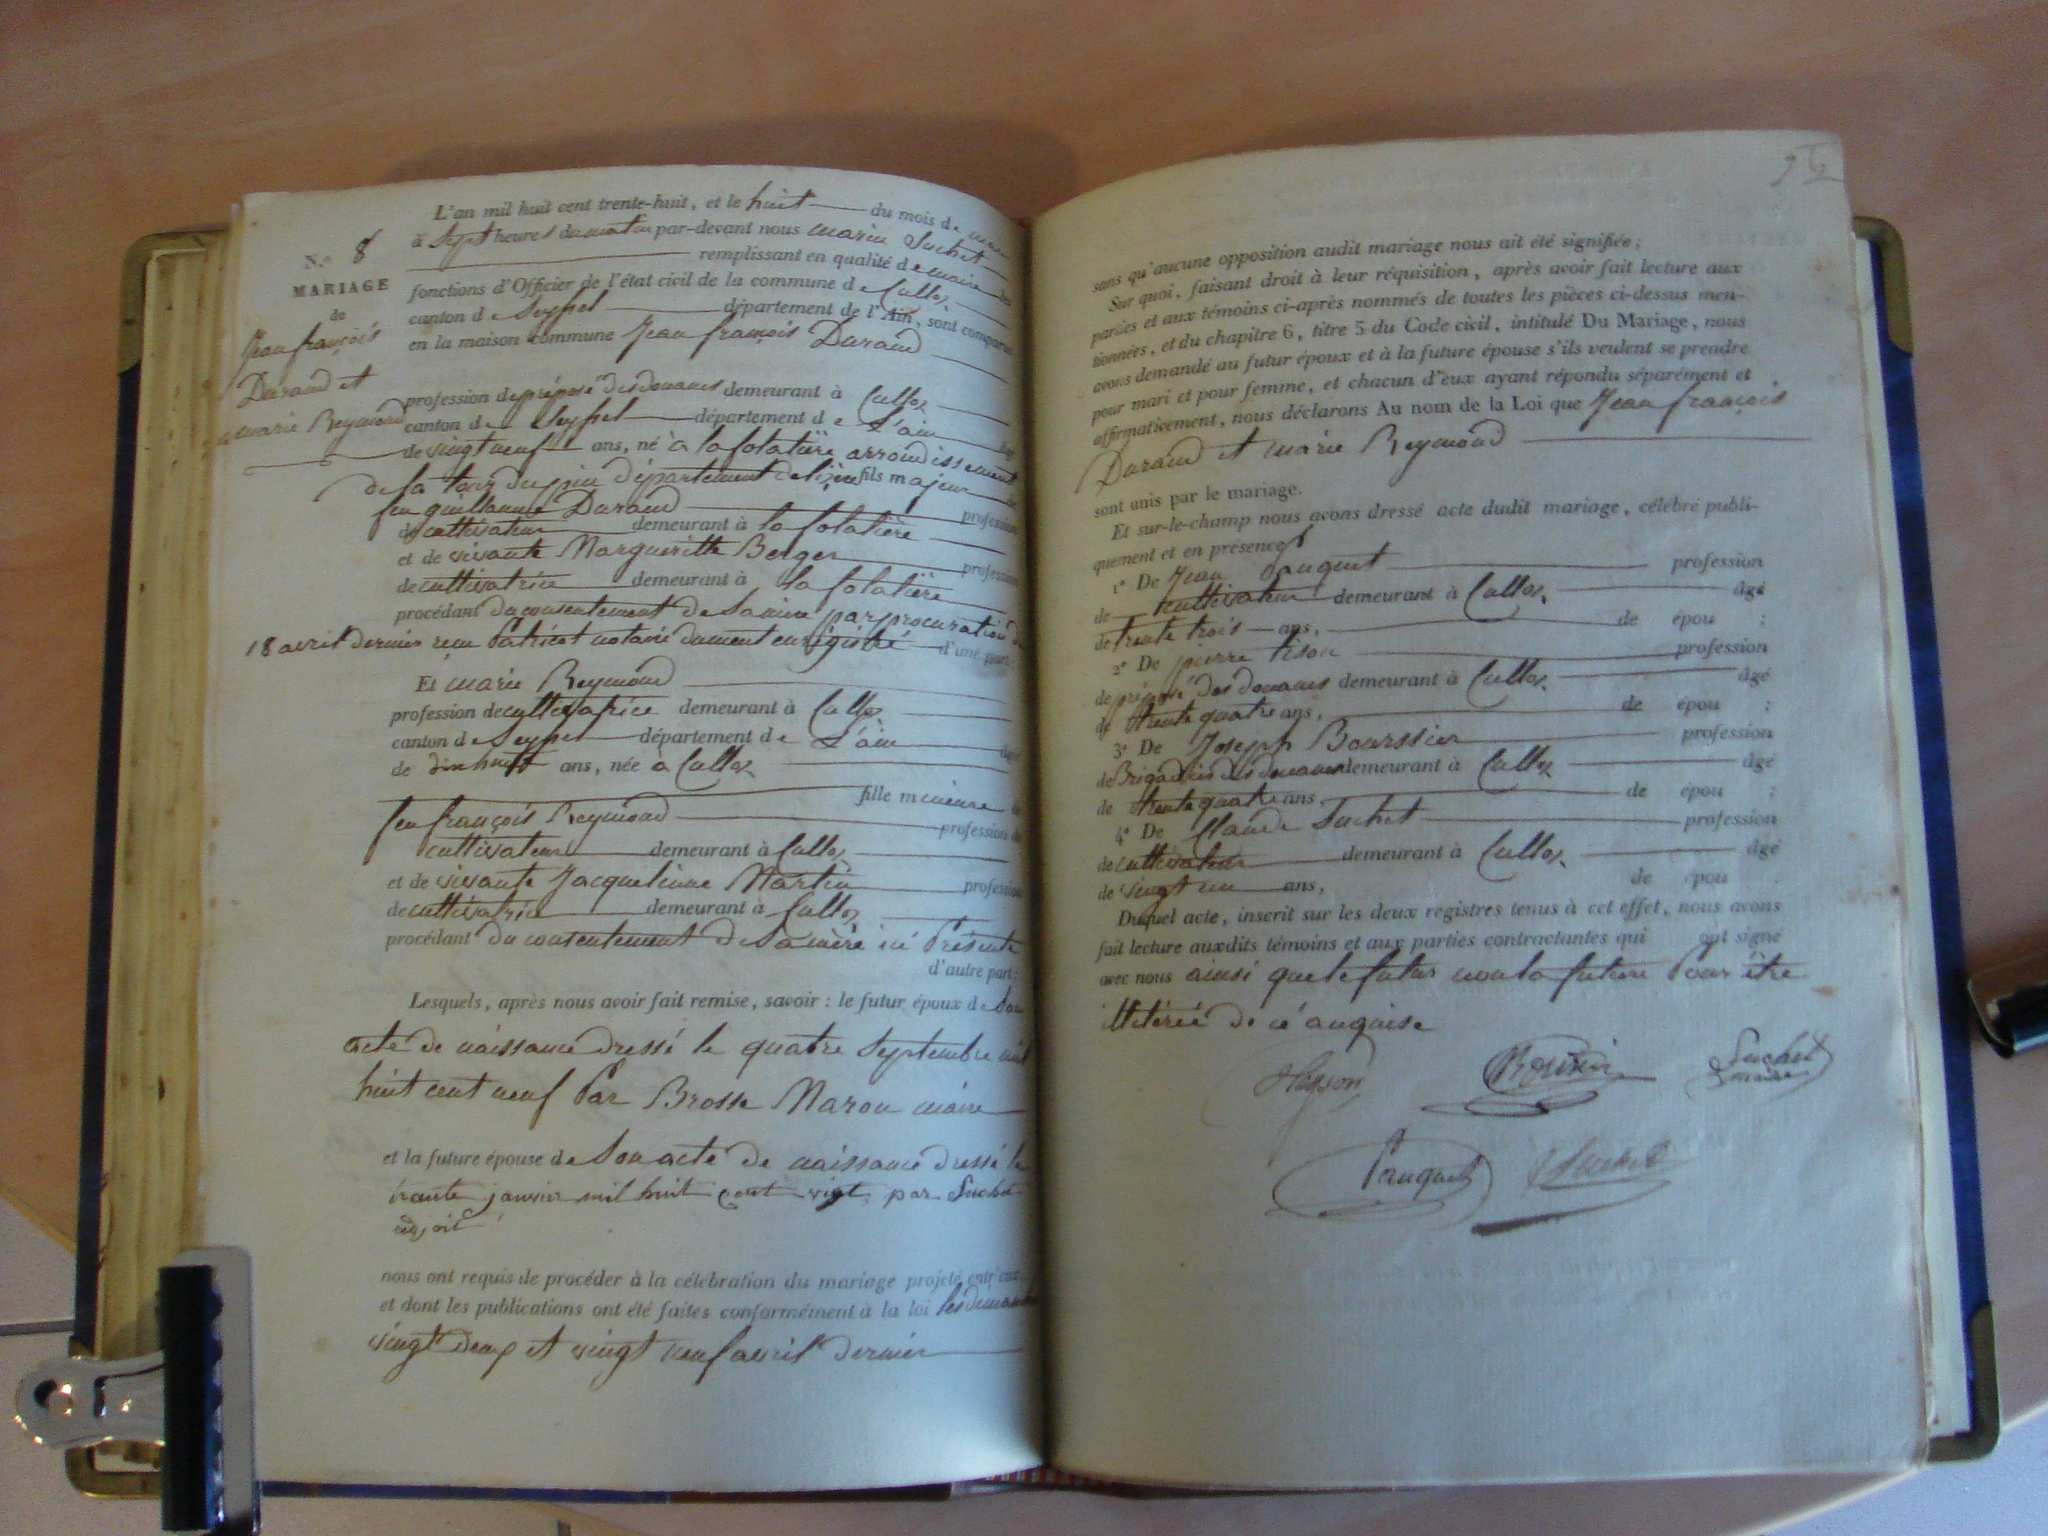 N.º 8
MARIAGE
de
Jean françois
Durand et
marie Reymond
L'an mil huit cent trente-huit, et le huit du mois de
à Sept heures du matin par-devant nous marin Suchet
remplissant en qualité de maire les
fonctions d'Officier de l'état civil de la commune de Culloz
canton de Seyssel département de l'Ain, sont comparus
en la maison commune Jean françois Durand
profession de préposé des douanes demeurant à Culloz
canton de Seyssel département de L'ain âgé
de vingt neuf ans, né à la folatière arrondissement
de la tour du pin département de lizère fils majeur de
feu guillaume Durand profession
de cultivateur demeurant à la folatière
et de vivante Margueritte Berger profession
de cultivatrice demeurant à la folatière
procédant du consentement de Sa mère par procuration du
18 avril dernier reçu Patricot notaire dument enrégistré d'une part;
Et marie Reymond
profession de cultivatrice demeurant à Culloz
canton de Seyssel département de L'ain âgée
de dix huit ans, née à Culloz
fille mineure de
feu françois Reymond profession de
cultivateur demeurant à Culloz
et de vivante Jacquelinne Martin profession
de cultivatrice demeurant à Culloz
procédant du consentement de Sa mère ici Présente
d'autre part;
Lesquels, après nous avoir fait remise, savoir: le futur époux de son
acte de naissance dressé le quatre Septembre mil
huit cent neuf Par Brosse Maron maire
et la future épouse de Son acte de naissance dressé le
trante janvier mil huit cent vigt, par Suchet
adjoit
nous ont requis de procéder à la célébration du mariage projeté entr'eux,
et dont les publications ont été faites conformément à la loi les dimanches
vingt deux et vingt neuf avril dernier
sans qu'aucune opposition audit mariage nous ait été signifiée;
Sur quoi, faisant droit à leur réquisition, après avoir fait lecture aux
parties et aux témoins ci-après nommés de toutes les pièces ci-dessus men-
tionnées, et du chapitre 6, titre 5 du Code civil, intitulé Du Mariage, nous
avons demandé au futur époux et à la future épouse s'ils veulent se prendre
pour mari et pour femme, et chacun d'eux ayant répondu séparément et
affirmativement, nous déclarons Au nom de la Loi que Jean françois
Durand et marie Reymond
sont unis par le mariage.
Et sur-le-champ nous avons dressé acte dudit mariage, célébré publi-
quement et en présence
1º De Jean Pauquet profession
de cultivateur demeurant à Culloz âgé
de trente trois ans, de épou ;
2º De pierre tison profession
de préposé des douanes demeurant à Culloz âgé
de trente quatre ans, de épou ;
3º De Joseph Bourssier profession
de Brigadier des douanes demeurant à Culloz âgé
de trente quatre ans, de épou ;
4º De Claude Suchet profession
de cultivateur demeurant à Culloz âgé
de vingt un ans, de épou .
Duquel acte, inscrit sur les deux registres tenus à cet effet, nous avons
fait lecture auxdits témoins et aux parties contractantes qui ont signé
avec nous ainsi que le futur non la future Pour être
illitérée de ce anquise
Suchet
maire
Pauquet Suchet